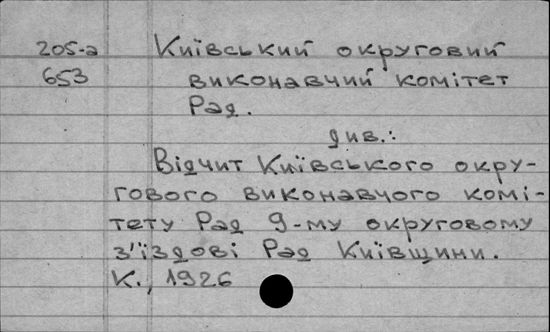 205-а Київський округовий
653 виконавчий комітет
Рад.
див.:
Відчит Київського окру-
гового виконавчого комі-
тету Рад 9-му округовому
з'їздові Рад Київщини.
К., 1926